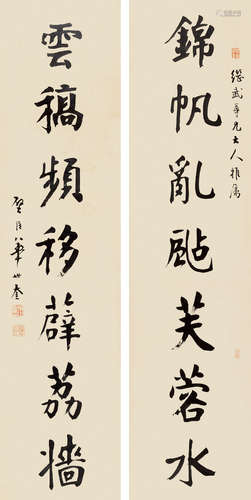 繼武尊兄大人雅屬
錦帆亂颭芙蓉水
雲稿頻移薜荔牆
璧臣華世奎